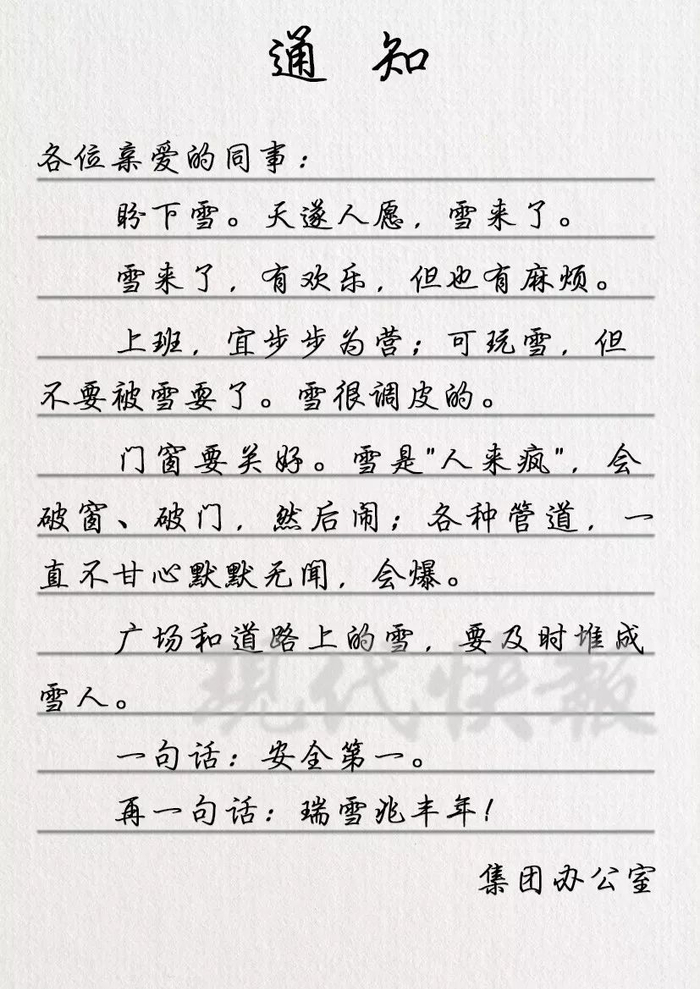 通 知
各位亲爱的同事：
盼下雪。天遂人愿，雪来了。
雪来了，有欢乐，但也有麻烦。
上班，宜步步为营；可玩雪，但
不要被雪耍了。雪很调皮的。
门窗要关好。雪是"人来疯"，会
破窗、破门，然后闹；各种管道，一
直不甘心默默无闻，会爆。
广场和道路上的雪，要及时堆成
雪人。
现代快報
一句话：安全第一。
再一句话：瑞雪兆丰年！
集团办公室